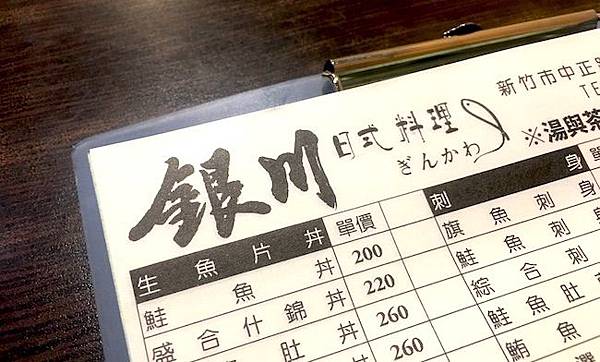 新竹市中正
TE
銀川
日式料理
ぎんかわ
※湯與茶
生魚片丼 單價 刺身 單
鮭魚丼 200 旗魚刺身
盛合什錦丼 220 鮭魚刺身
魚肚丼 260 綜合刺
260 鮭魚肚
鮪魚